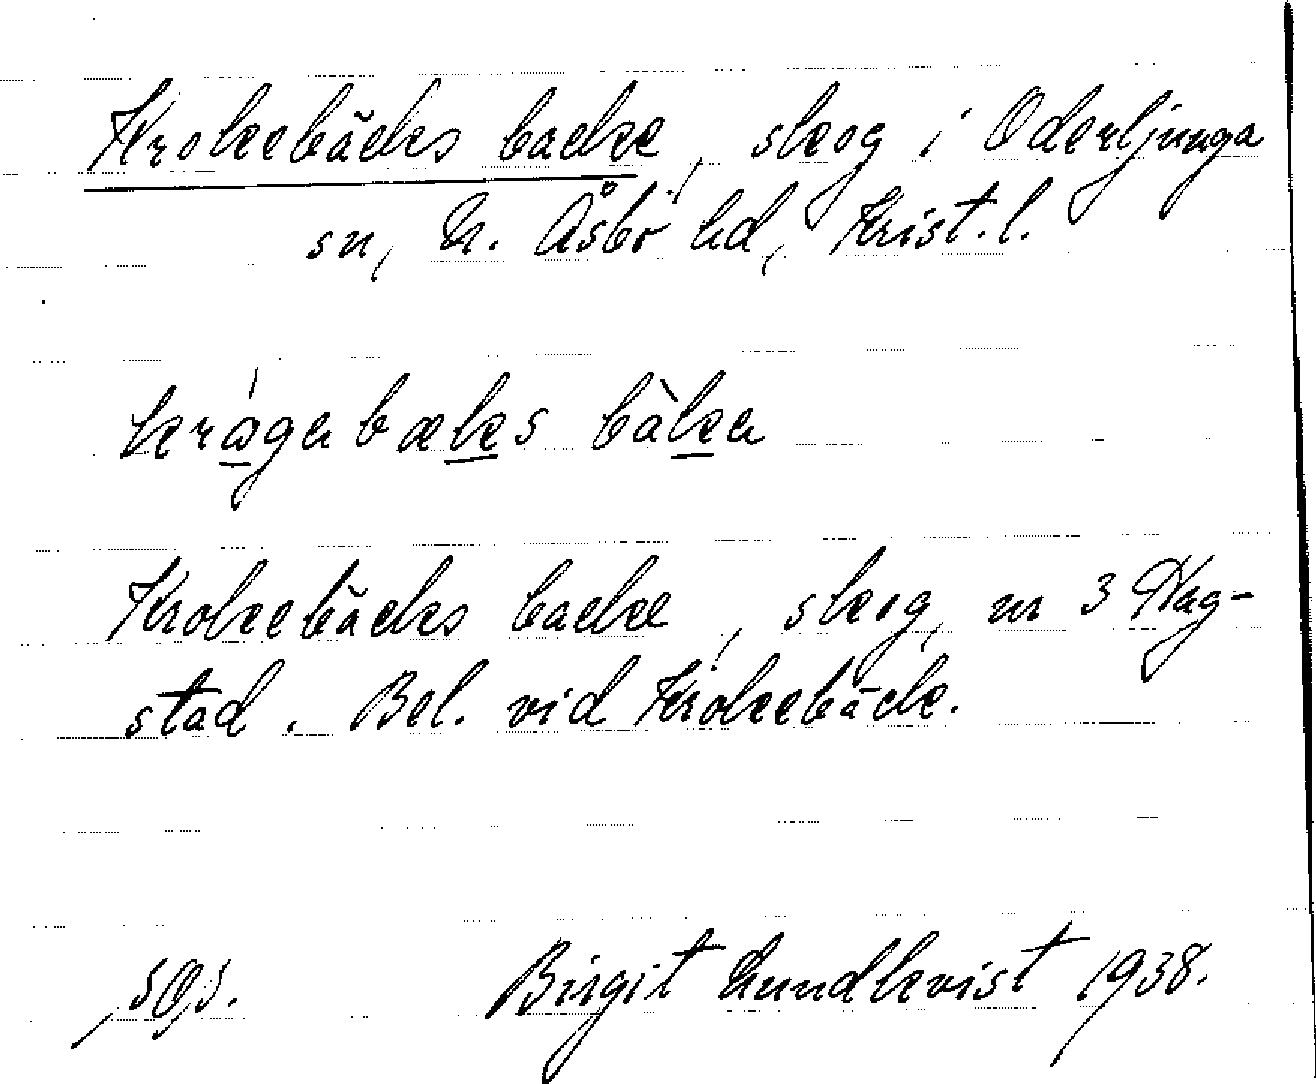 Krokebäcks backe, skog i Oderljunga
sn, N. Åsbo hd, Krist. l.
krågabæks bàka
Krokebäcks backe, skog, nr 3 Hag-
stad. Bel. vid Krokebäck.
Birgit Lundkvist 1938.